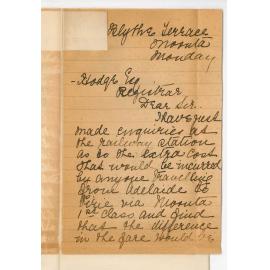 Blythe Terrace
Moonta
Monday
- Hodge Esq
Registrar
Dear Sir.
I have just
made enquiries at
the railway station
as to the extra cost
that would be incurred
by anyone travelling
from Adelaide to
Pirie via Moonta
1st class and find
that the difference
in the fare would be